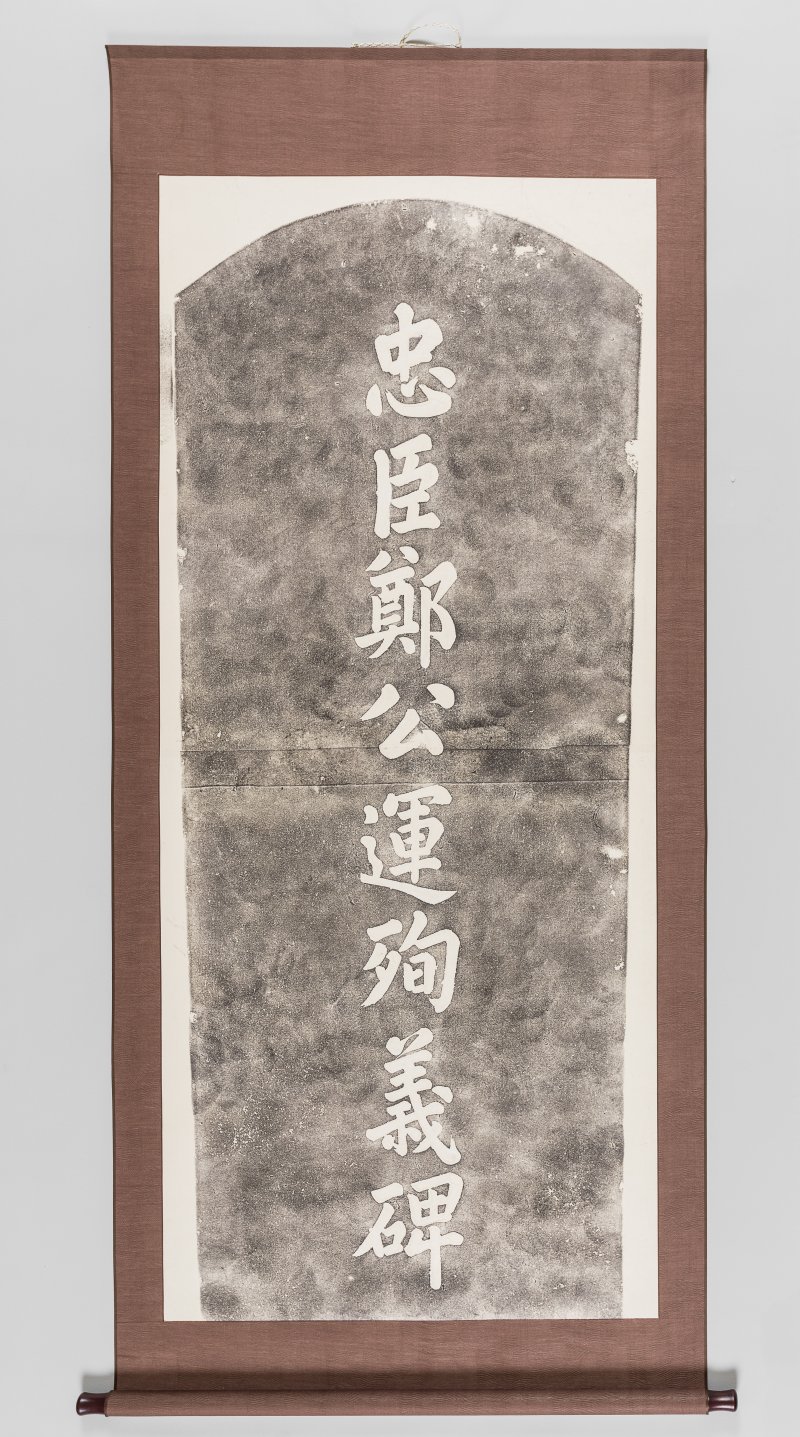 忠臣鄭公運殉義碑